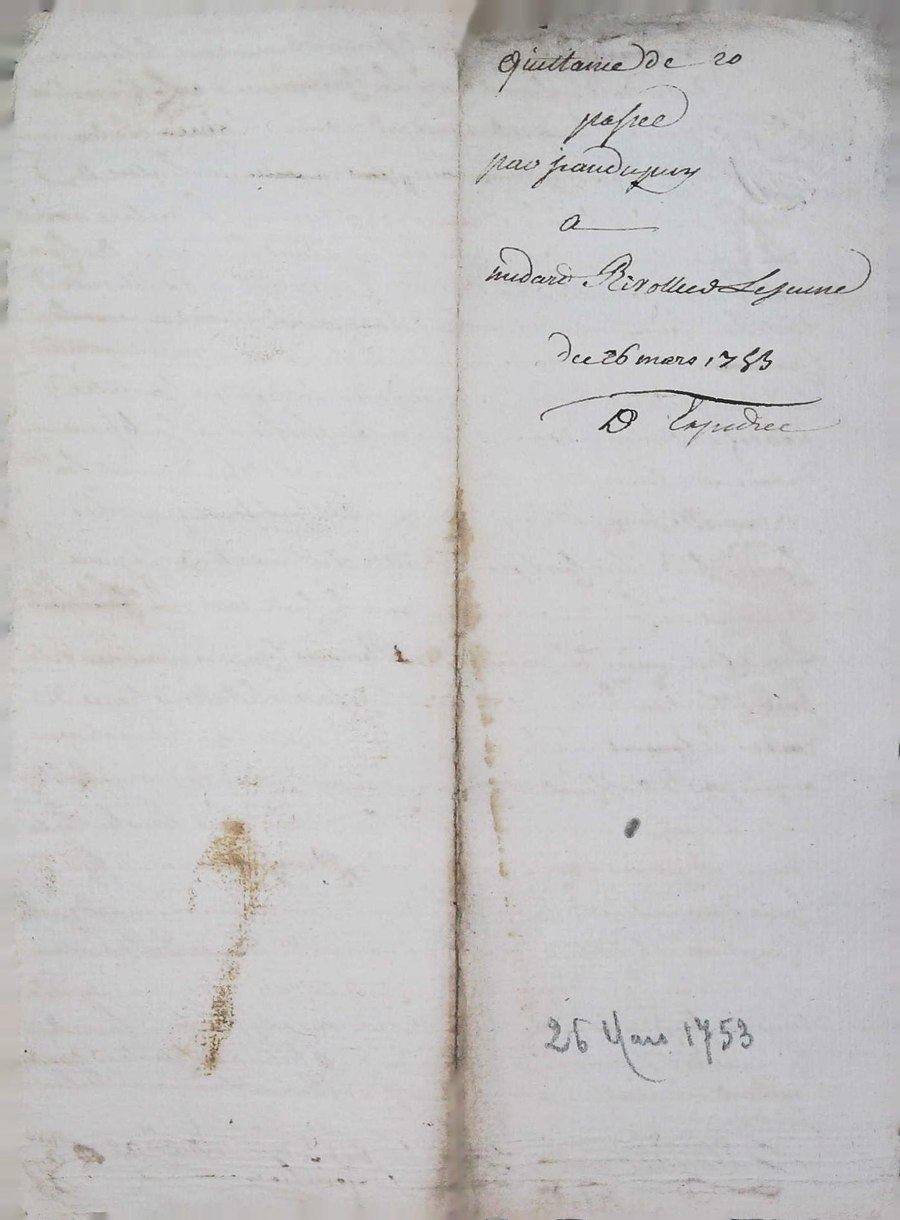 Quittance de 20
passée
par jean dupuy
a
medard Rivollier Lejeune
du 26 mars 1753
D Expediée
26 Mars 1753